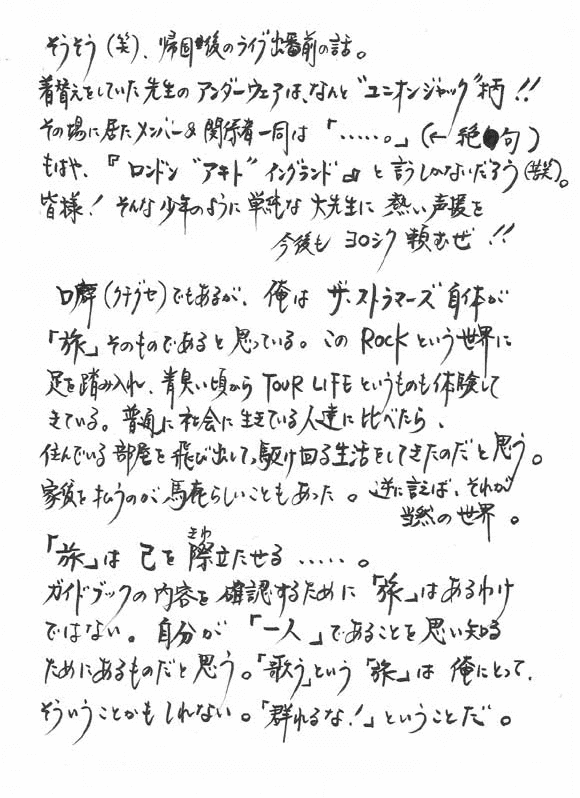 そうそう（笑）、帰国後のライブ出番前の話。
着替えをしていた先生のアンダーウェアは、なんと“ユニオンジャック”柄!!
その場に居たメンバー&関係者一同は「……。」（←絶句）
もはや、『ロンドン“アキト”イングランド』と言うしかないだろう（苦笑）。
皆様！そんな少年のように単純な大先生に熱い声援を
今後もヨロシク頼むぜ!!
口癖（クチグセ）でもあるが、俺はザ・ストラマーズ自体が
「旅」そのものであると思っている。このROCKという世界に
足を踏み入れ、青臭い頃からTOUR LIFEというものも体験して
きている。普通に社会に生きている人達に比べたら、
住んでいる部屋を飛び出して、駆け回る生活をしてきたのだと思う。
家賃を払うのが馬鹿らしいこともあった。逆に言えば、それが
当然の世界。
「旅」は己を際立たせる……。
きわ
ガイドブックの内容を確認するために「旅」はあるわけ
ではない。自分が「一人」であることを思い知る
ためにあるものだと思う。「歌う」という「旅」は俺にとって、
そういうことかもしれない。「群れるな！」ということだ。